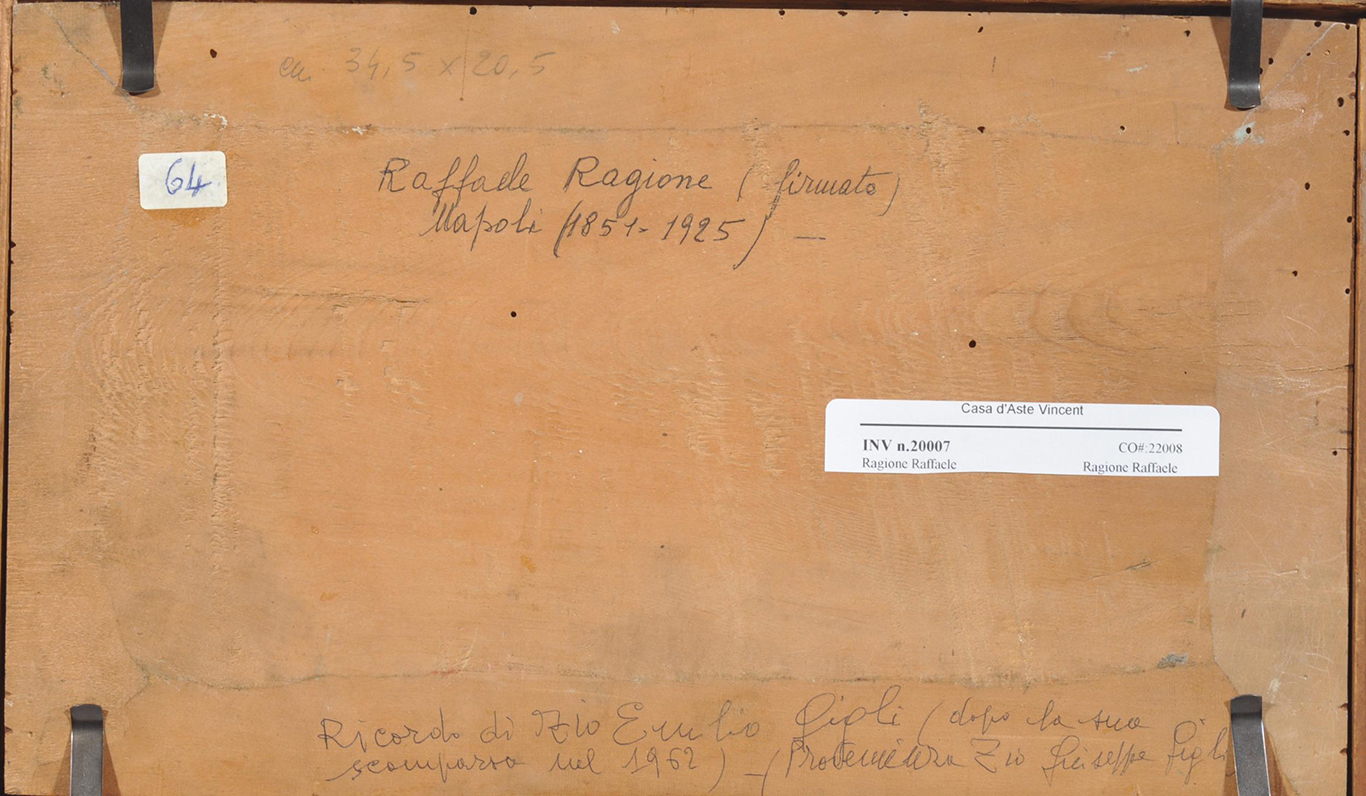 cm. 34,5 x 20,5
64
Raffaele Ragione (firmato)
Napoli (1851-1925) —
Casa d'Aste Vincent
INV n.20007 CO#:22008
Ragione Raffaele Ragione Raffaele
Ricordo di Zio Emilio Gigli (dopo la sua
scomparsa nel 1962) — (Provenienza Zio Giuseppe Gigli